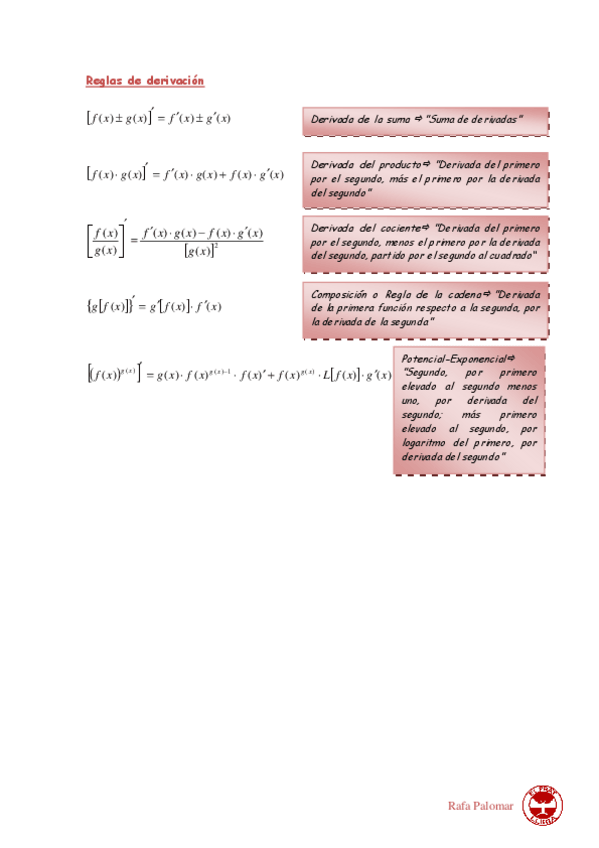 Reglas de derivación
[f(x) ± g(x)]′ = f′(x) ± g′(x)
Derivada de la suma ⇨ "Suma de derivadas"
[f(x) · g(x)]′ = f′(x) · g(x) + f(x) · g′(x)
Derivada del producto⇨ "Derivada del primero
por el segundo, más el primero por la derivada
del segundo"
[f(x) / g(x)]′ = (f′(x) · g(x) − f(x) · g′(x)) / [g(x)]²
Derivada del cociente⇨ "Derivada del primero
por el segundo, menos el primero por la derivada
del segundo, partido por el segundo al cuadrado"
{g[f(x)]}′ = g′[f(x)] · f′(x)
Composición o Regla de la cadena⇨ "Derivada
de la primera función respecto a la segunda, por
la derivada de la segunda"
[(f(x))^g(x)]′ = g(x) · f(x)^(g(x)−1) · f(x)′ + f(x)^g(x) · L[f(x)] · g′(x)
Potencial-Exponencial⇨
"Segundo, por primero
elevado al segundo menos
uno, por derivada del
segundo; más primero
elevado al segundo, por
logaritmo del primero, por
derivada del segundo"
Rafa Palomar